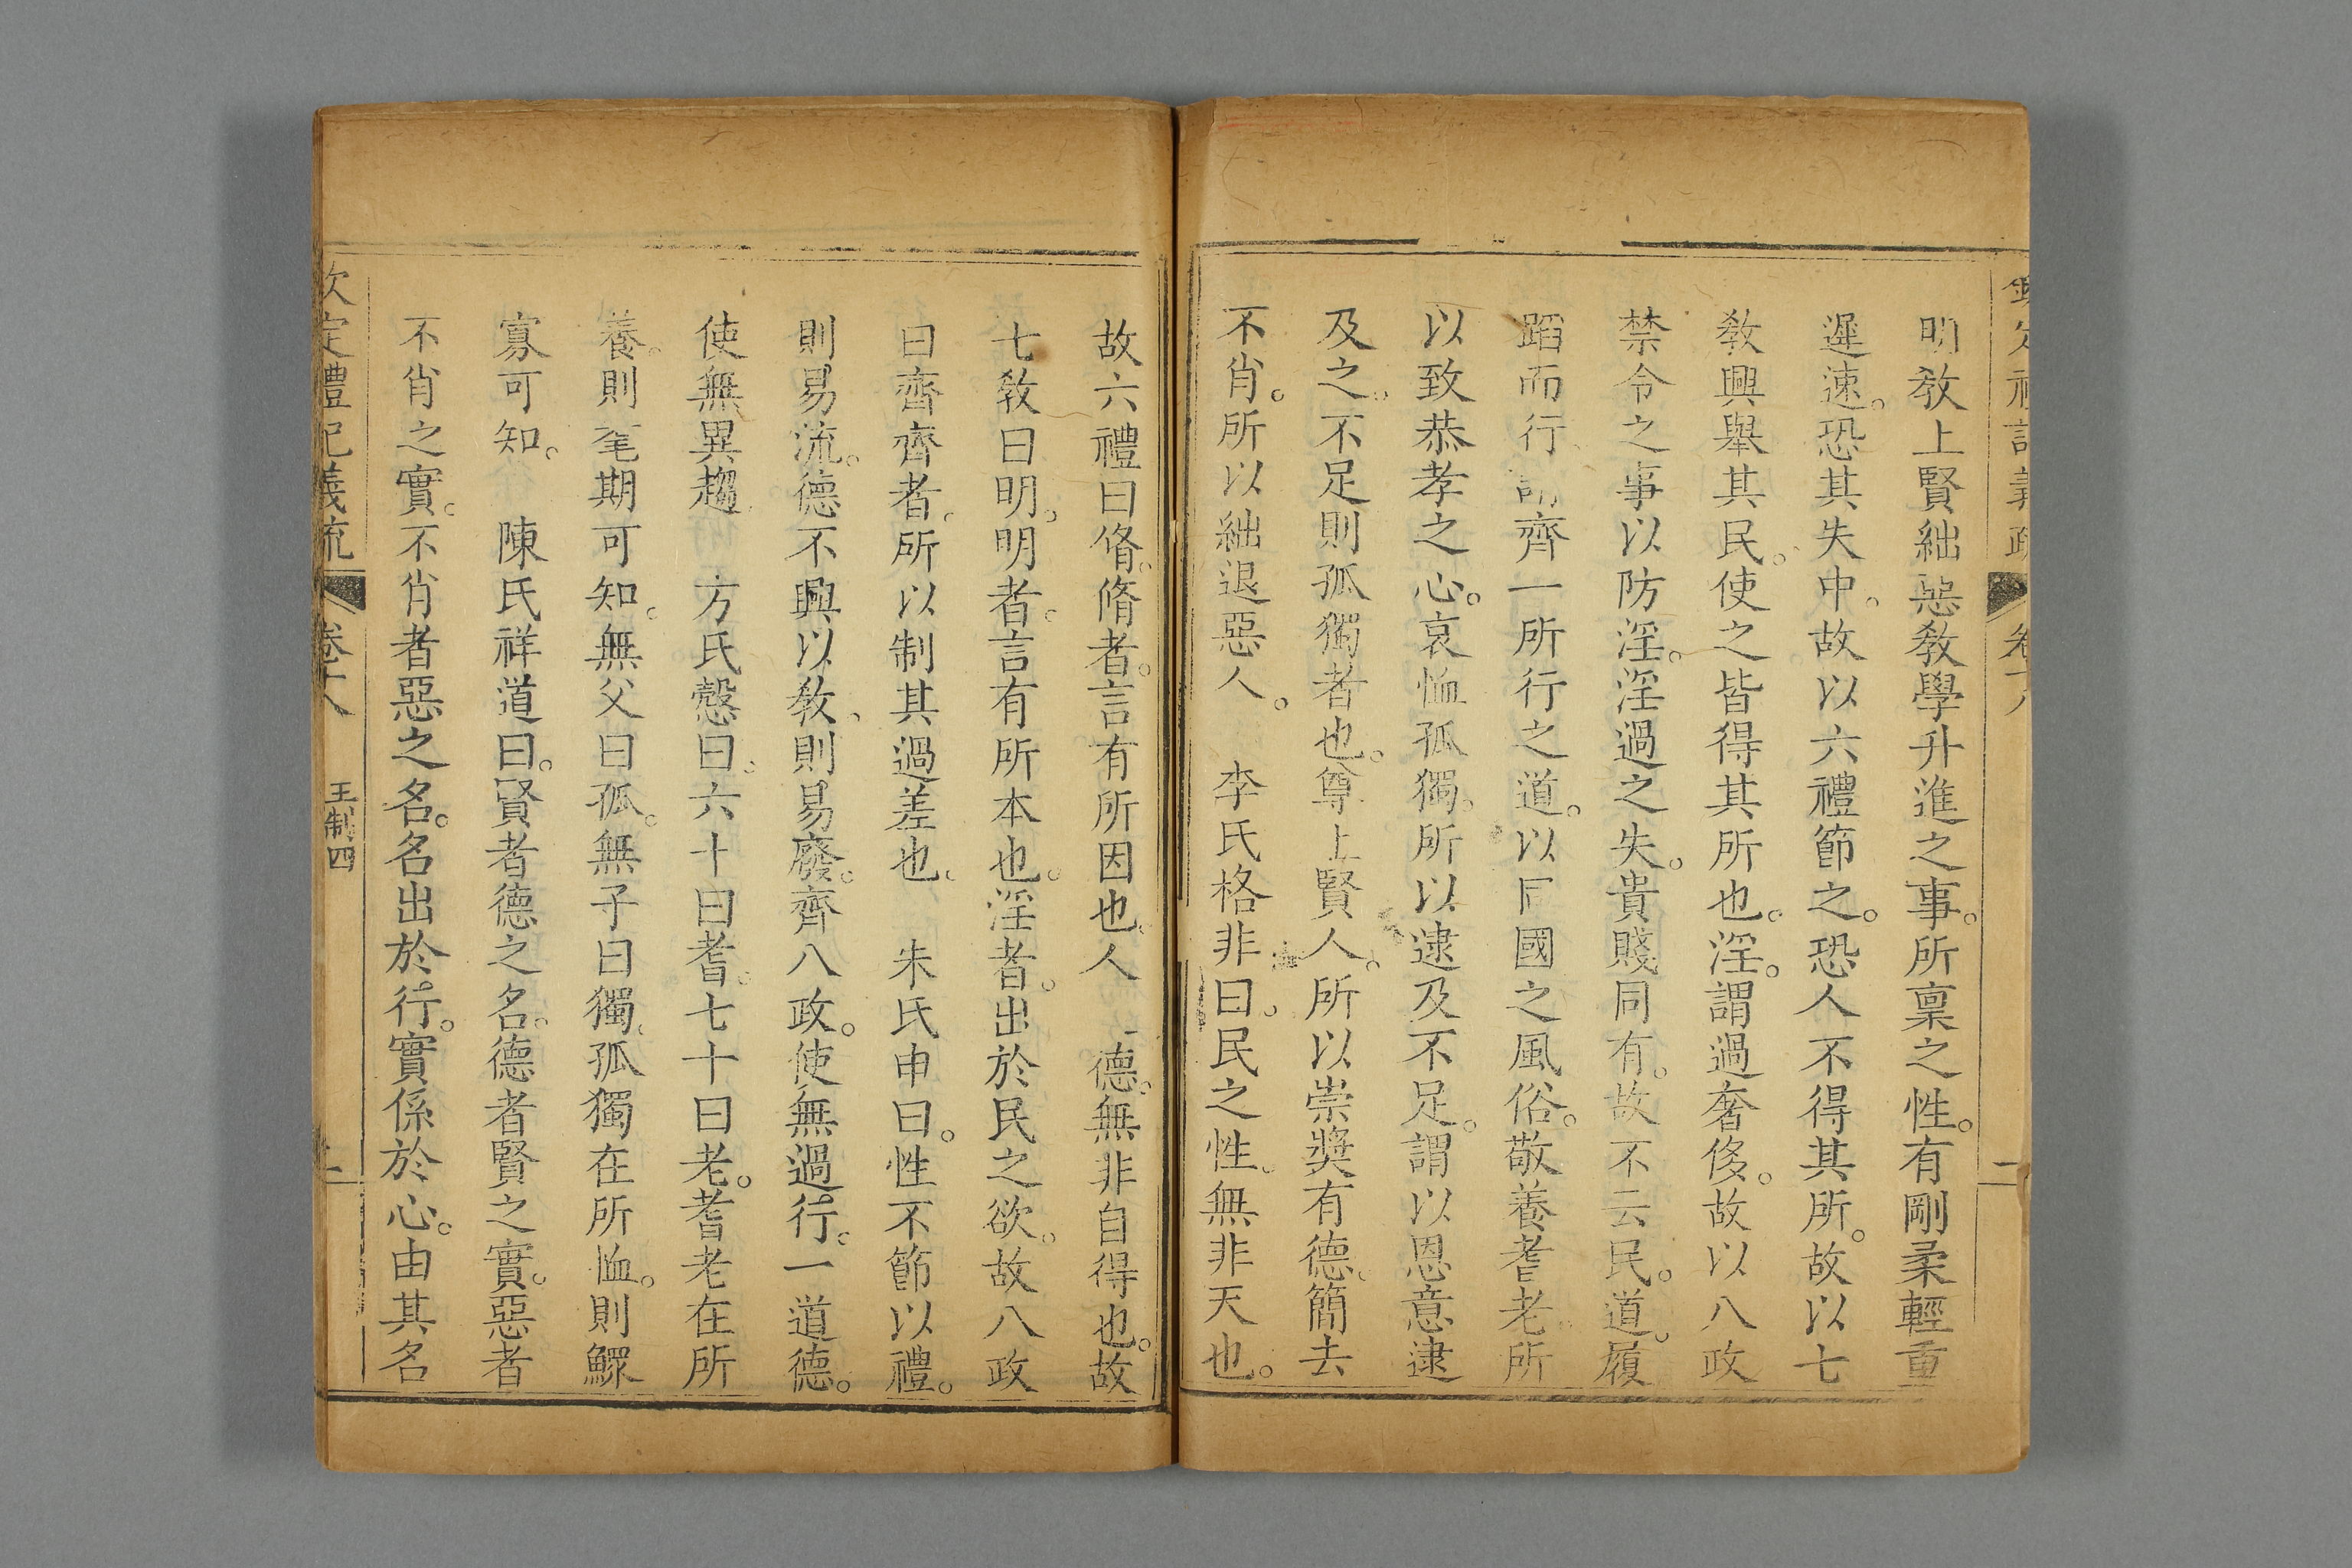 欽定禮記義疏 卷十八 二
明教上賢絀惡教學升進之事。所稟之性。有剛柔輕重
遲速。恐其失中。故以六禮節之。恐人不得其所。故以七
教興舉其民。使之皆得其所也。淫。謂過奢侈。故以八政
禁令之事以防淫。淫過之失。貴賤同有。故不云民。道。履
蹈而行。謂齊一所行之道。以同國之風俗。敬養耆老。所
以致恭孝之心。哀恤孤獨。所以逮及不足。謂以恩意逮
及之。不足則孤獨者也。尊上賢人。所以崇獎有德。簡去
不肖。所以絀退惡人。 李氏格非曰。民之性。無非天也。
故六禮曰脩。脩者。言有所因也。人 德。無非自得也。故
七教曰明。明者。言有所本也。淫者。出於民之欲。故八政
曰齊。齊者。所以制其過差也。 朱氏申曰。性不節以禮。
則易流。德不興以教、則易廢。齊八政。使無過行。一道德。
使無異趨。 方氏慤曰。六十曰耆。七十曰老。耆老在所
養。則耄期可知。無父曰孤。無子曰獨。孤獨在所恤。則鰥
寡可知。 陳氏祥道曰。賢者德之名。德者賢之實。惡者
不肖之實。不肖者惡之名。名出於行。實係於心。由其名
欽定禮記義疏 卷十八 王制四 二